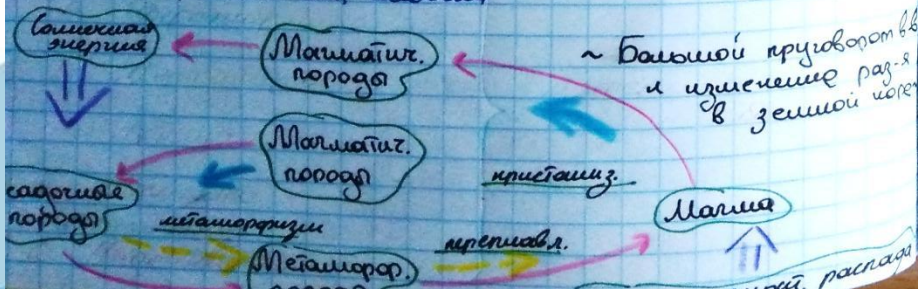 Солнечная
энергия
Магматич.
породы
~ Большой круговорот в-в
и изменение раз-я
в земной коре
Магматич.
породы
садочные
породы
кристаллиз.
Магма
метаморфизм
переплавл.
Метаморф.
распада